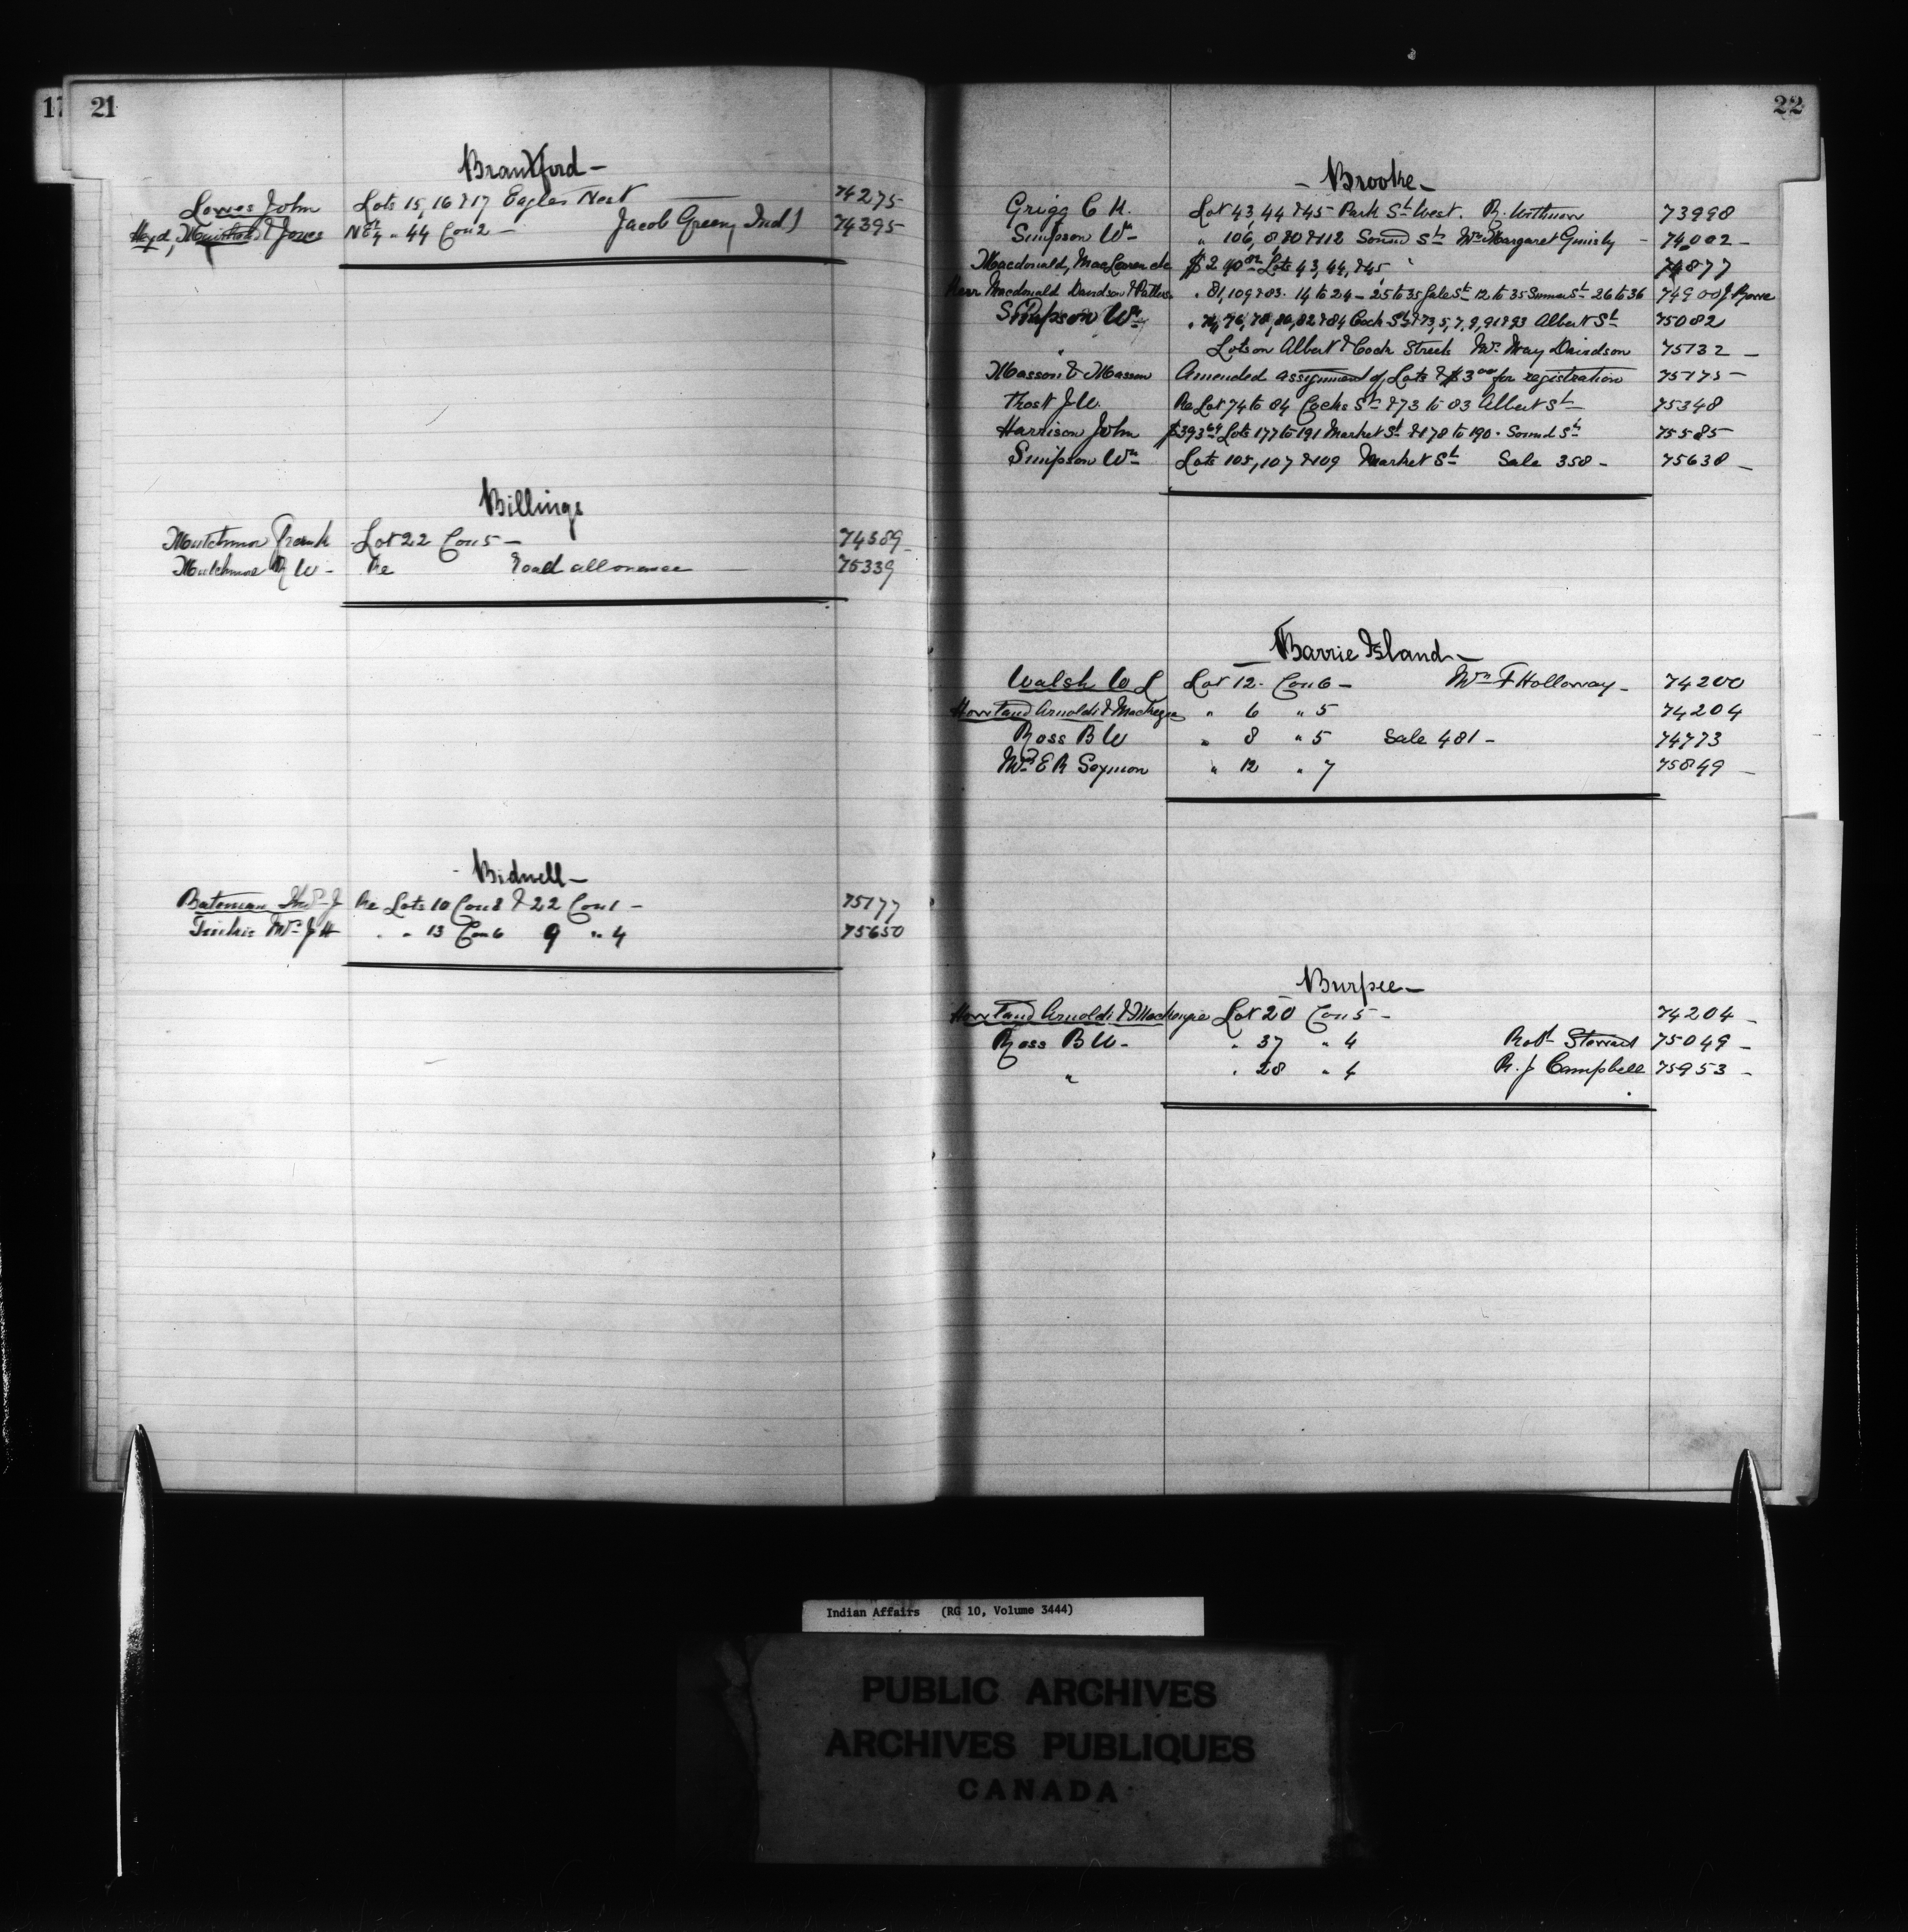 17 21
Brantford -
Lowes John Lots 15, 16 & 17 Eagles Nest 74275
Lloyd, & Jones N E 1/4 " 44 Con 2 - Jacob Green, Ind) 74395
Billings
Mutchmor Frank Lot 22 Con 5 - 74389
Mutchmore R W - Re Road allowance 75339
- Bidwell -
Bateman Thos J Re Lots 10 Con 8 & 22 Con 1 - 75177
Mrs J H " " 13 Con 6 9 " 4 75650
22
- Brooke -
Grigg C H. Lot 43, 44 & 45 Park St West. R. 73998
Simpson Wm " 106, 8, 80 & 112 Sound St Mrs Margaret - 74002 -
Macdonald, MacLaren etc $2 40 Lots 43, 44, & 45 74877
Macdonald Davidson & " 81, 109 & 83. 14 to 24 - 25 to 35 Gale St 12 to 35 Sumner St 26 to 36 74900
Simpson Wm " 74, 76, 78, 80, 82 & 84 Cock St & 73, 5, 7, 9, 91 & 93 Albert St 75082
" Lots on Albert & Cock Streets Mrs May Davidson 75132 -
Masson & Masson Amended assignment of Lots & $3 00 for registration 75175 -
Frost J W. Re Lot 74 to 84 Cocks St & 73 to 83 Albert St 75348
Harrison John $393 64 Lots 177 to 191 Market St & 178 to 190 . Sound St 75585
Simpson Wm Lots 105, 107 & 109 Market St Sale 358 - 75638 -
- Barrie Island -
Walsh W L Lot 12. Con 6 - Wm F Holloway - 74200
Howland Arnoldi & MacKenzie " 6 " 5 74204
Ross B W " 8 " 5 Sale 481 - 74773
Mrs E R Seymour " 12 " 7 75849 -
Burpee -
Howland Arnoldi & MacKenzie Lot 20 Con 5 - 74204 -
Ross B W - " 37 " 4 Robt Stewart 75049 -
" " 28 " 4 R. J Campbell 75953 -
Indian Affairs (RG 10, Volume 3444)
PUBLIC ARCHIVES
ARCHIVES PUBLIQUES
CANADA